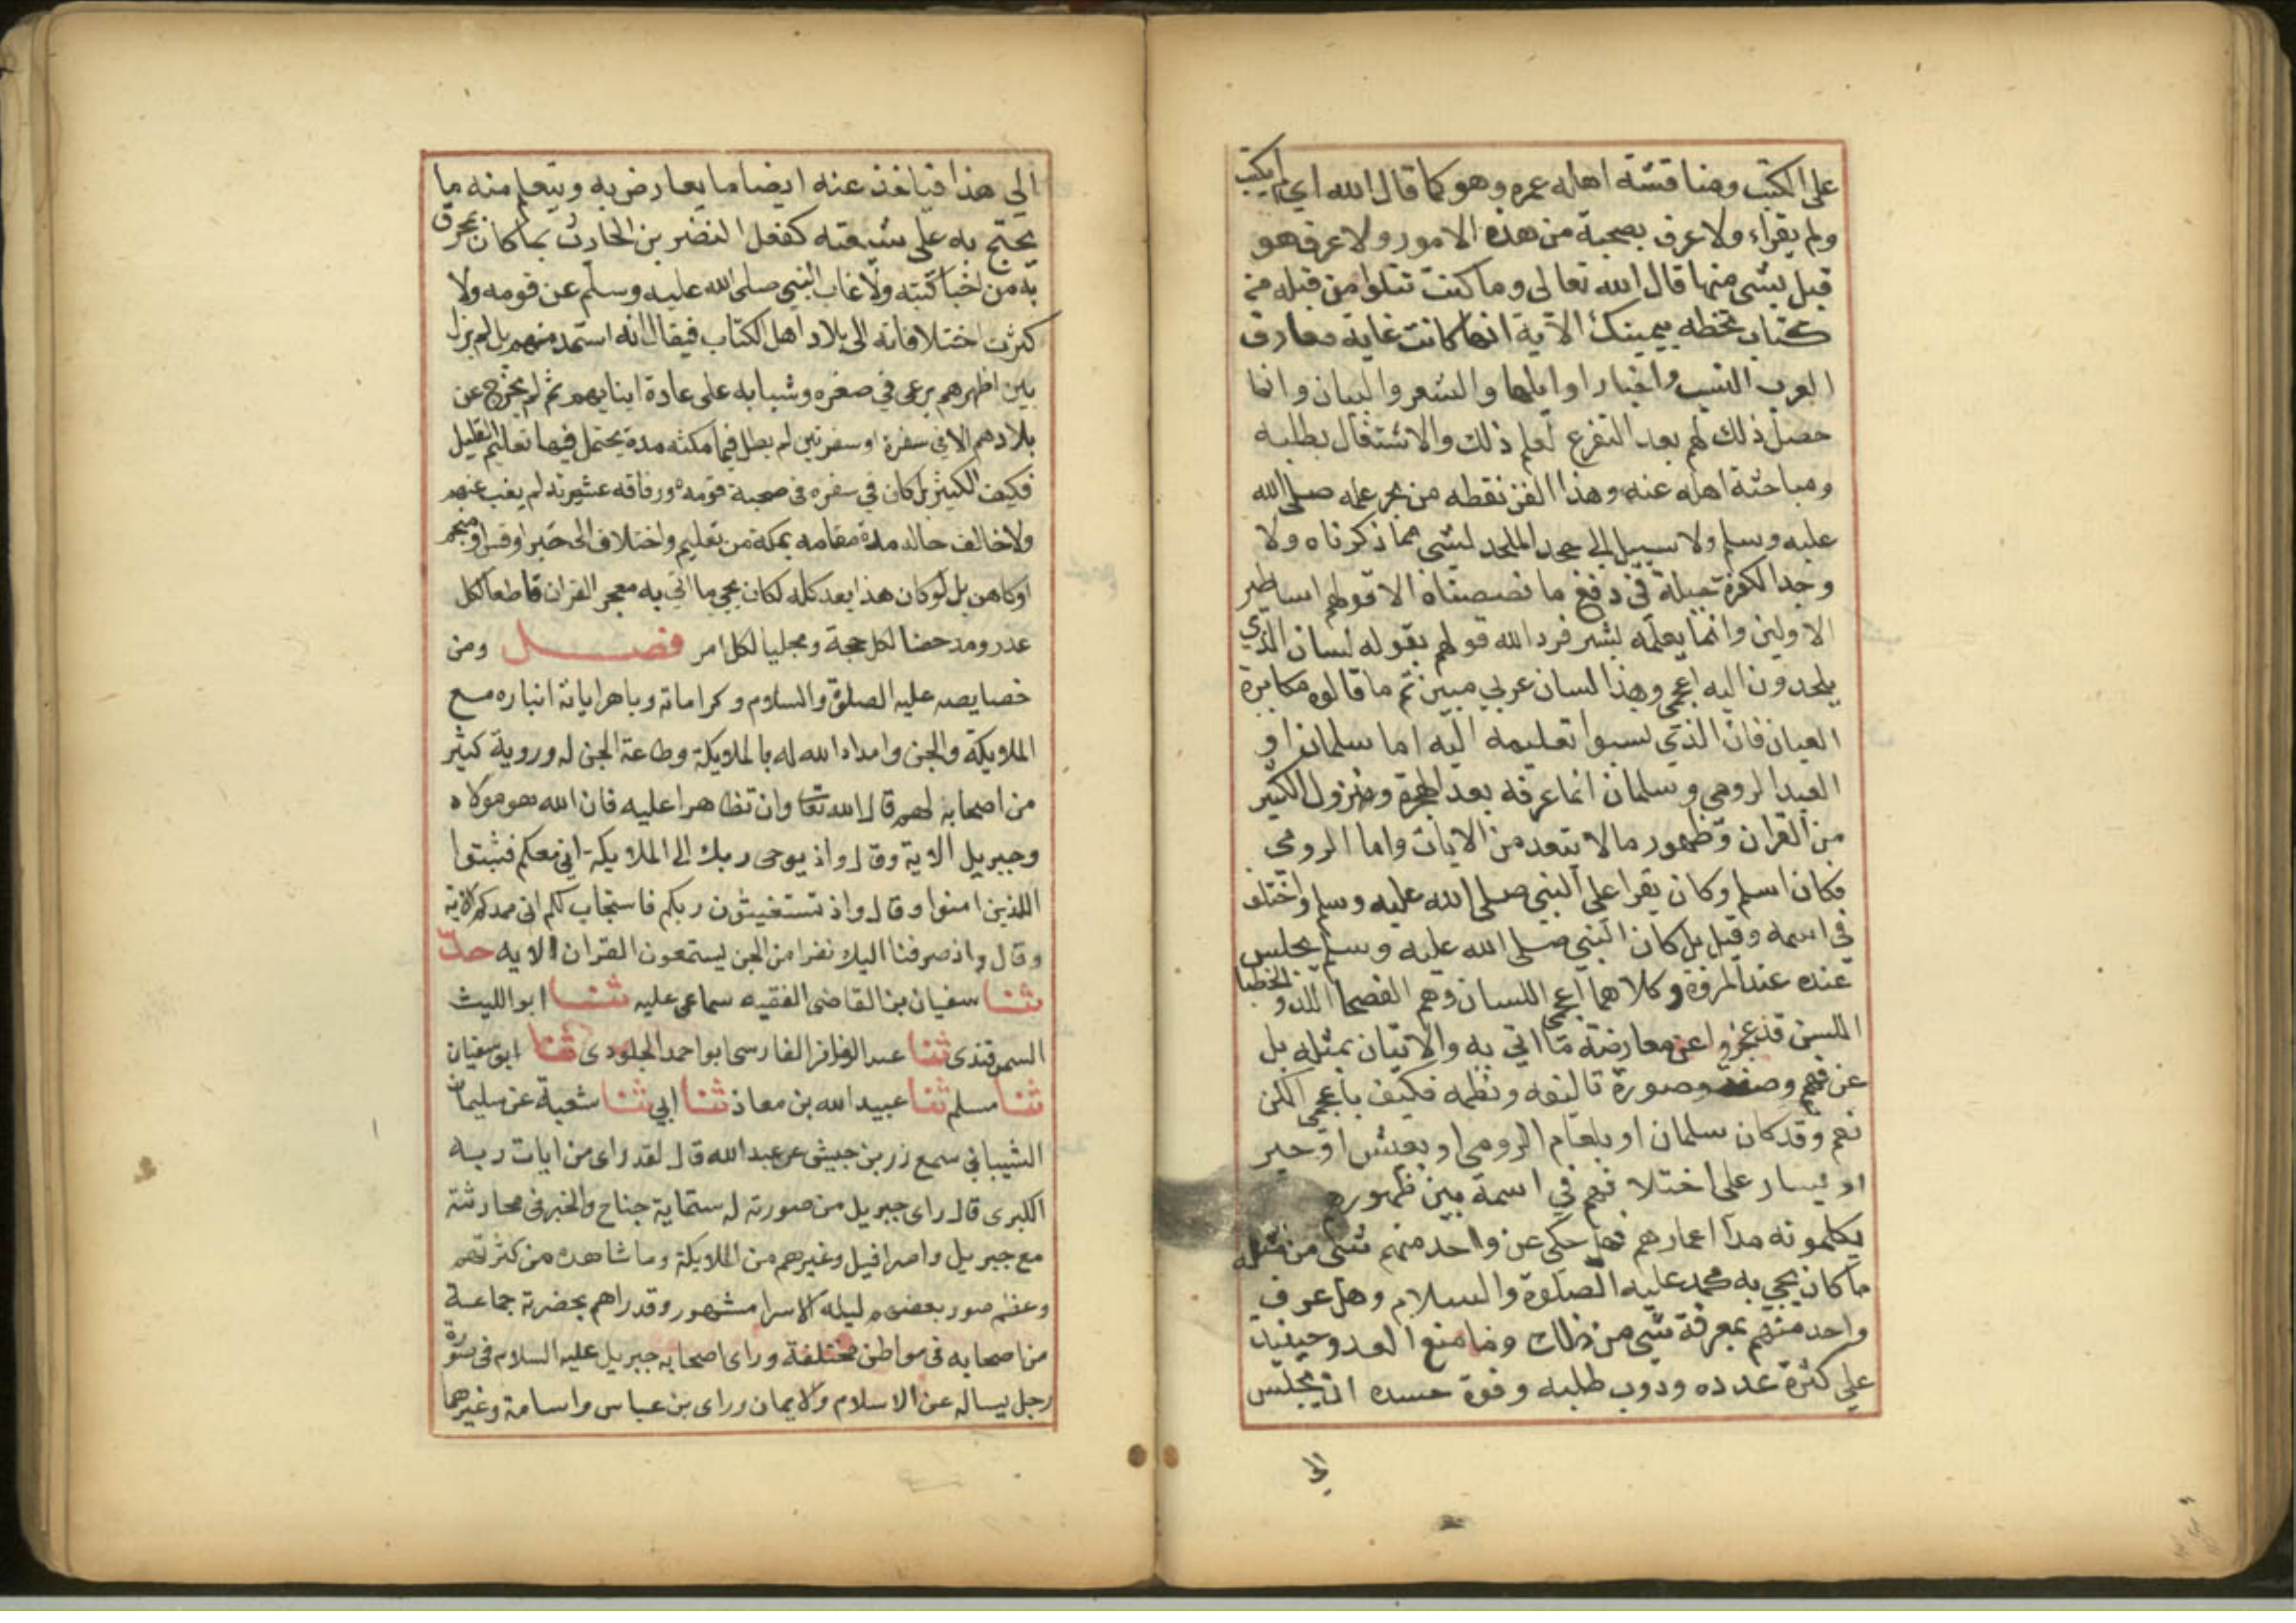 على الكتب ومناقشة اهله عمره وهو كما قال الله امي لم يكتب
ولم يقراء ولا عرف بصحبة من هذه الامور ولا عرف هو
قبل بشى منها قال الله تعالى وما كنت تتلوا من قبله من
كتاب تخطه بيمينك الآية انما كانت غاية معارف
العرب النسب واخبار اوايلها والشعر والبيان وانما
حصل ذلك لهم بعد التفرغ لعلم ذلك والاشتغال بطلبه
ومباحثة اهله عنه وهذا الفن نقطه من بحر علمه صلى الله
عليه وسلم ولا سبيل الى جحد الملحد لشى مما ذكرناه ولا
وجد الكفرة حيلة فى دفع ما نصصناه الا قولهم اساطير
الاولين وانما يعلمه بشر فرد الله قولهم بقوله لسان الذي
يلحدون اليه اعجمى وهذا لسان عربي مبين ثم ما قالوه مكابرة
العيان فان الذي نسبوا تعليمه اليه اما سلمان او
العبد الرومي وسلمان انما عرفه بعد الهجرة ونزول الكثير
من القران وظهور ما لا يتعد من الايات واما الرومي
فكان اسلم وكان يقرا على النبى صلى الله عليه وسلم واختلف
فى اسمه وقيل بل كان النبى صلى الله عليه وسلم يجلس
عنده عند المروة وكلاهما اعجمى اللسان وهم الفصحا اللد والخطبا
اللسن قد عجزوا عن معارضة ما اتى به والاتيان بمثله بل
عن فهم وصفه وصورة تاليفه ونظمه فكيف باعجمى الكن
نعم وقد كان سلمان او بلعام الرومى او يعش او جبر
او يسار على اختلافهم في اسمه بين ظهورهم
يكلمونه مدا اعمارهم فهل حكى عن واحد منهم شى من مثله
ما كان يجي به محمد عليه الصلوة والسلام وهل عرف
واحد منهم بمعرفة شى من ذلك وما منع العدو حينيذ
على كثرة عدده ودوب طلبه وقوة حسده ان يجلس
الى
الى هذا فياخذ عنه ايضا ما يعارض به ويتعلم منه ما
يحتج به على شيعته كفعل النضر بن الحارث بما كان يمخرق
به من اخبار كتبه ولا غاب النبى صلى الله عليه وسلم عن قومه ولا
كثرت اختلافاته الى بلاد اهل الكتاب فيقال انه استمد منهم بل لم يزل
بين اظهرهم يرعى في صغره وشبابه على عادة ابنايهم ثم لم يخرج عن
بلادهم الا في سفرة او سفرتين لم يطل فيها مكثه مدة يحتمل فيها تعاليم القليل
فكيف الكثير بل كان في سفره فى صحبة قومه ورفاقه عشيرته لم يغب عنهم
ولا خالف حاله مدة مقامه بمكة من تعليم واختلاف الى حبر او قس او منجم
او كاهن بل لو كان هذا بعد كله لكان يجي ما اتى به معجز القران قاطعا لكل
عذر ومدحضا لكل حجة ومجليا لكل امر فصل ومن
خصايصه عليه الصلوة والسلام وكراماته وباهر اياته انباره مع
الملايكة والجن وامداد الله له بالملايكة وطاعة الجن له وروية كثير
من اصحابه لهم قال الله تعا وان تظاهرا عليه فان الله هو مولاه
وجبريل الاية وقال واذ يوحى ربك الى الملايكة انى معكم فثبتوا
اللذين امنوا وقال واذ تستغيثون ربكم فاستجاب لكم انى ممدكم الاية
وقال واذ صرفنا اليك نفرا من الجن يستمعون القران الايه حد
ثنا سفيان بن القاضى الفقيه سماعى عليه ثنا ابو الليث
السمرقندى ثنا عبد الغافر الفارسى ابو احمد الجلودى ثنا ابو سفيان
ثنا مسلم ثنا عبيد الله بن معاذ ثنا ابي ثنا شعبة عن سليمان
الشيباني سمع زر بن حبيش عن عبد الله قال لقد راى من ايات ربه
الكبرى قال راى جبريل من صورته له ستماية جناح والخبر فى محادثته
مع جبريل واصرافيل وغيرهم من الملايكة وما شاهده من كثرتهم
وعظم صور بعضهم ليله الاسرا مشهور وقد راهم بحضرته جماعة
من اصحابه فى مواطن مختلفة وراى اصحابه جبريل عليه السلام فى صورة
رجل يساله عن الاسلام والايمان وراى بن عباس واسامة وغيرهما